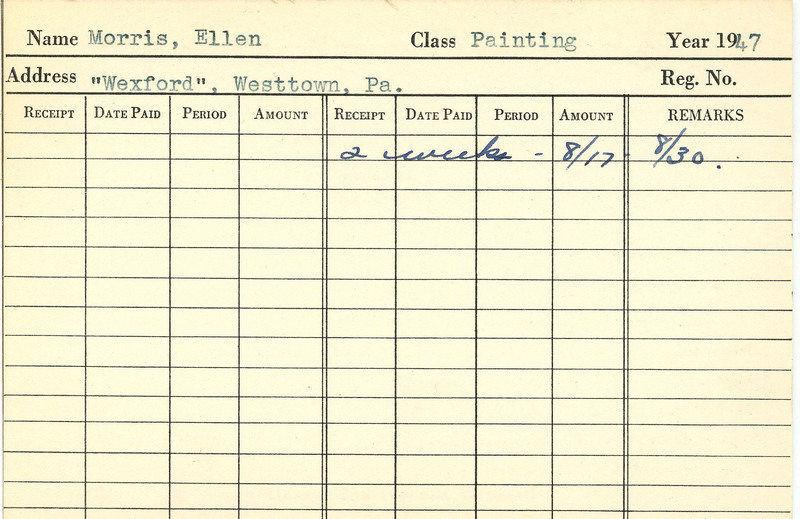 Name Morris, Ellen Class Painting Year 1947
Address "Wexford", Westtown, Pa. Reg. No.
RECEIPT DATE PAID PERIOD AMOUNT RECEIPT DATE PAID PERIOD AMOUNT REMARKS
2 weeks - 8/17 - 8/30.